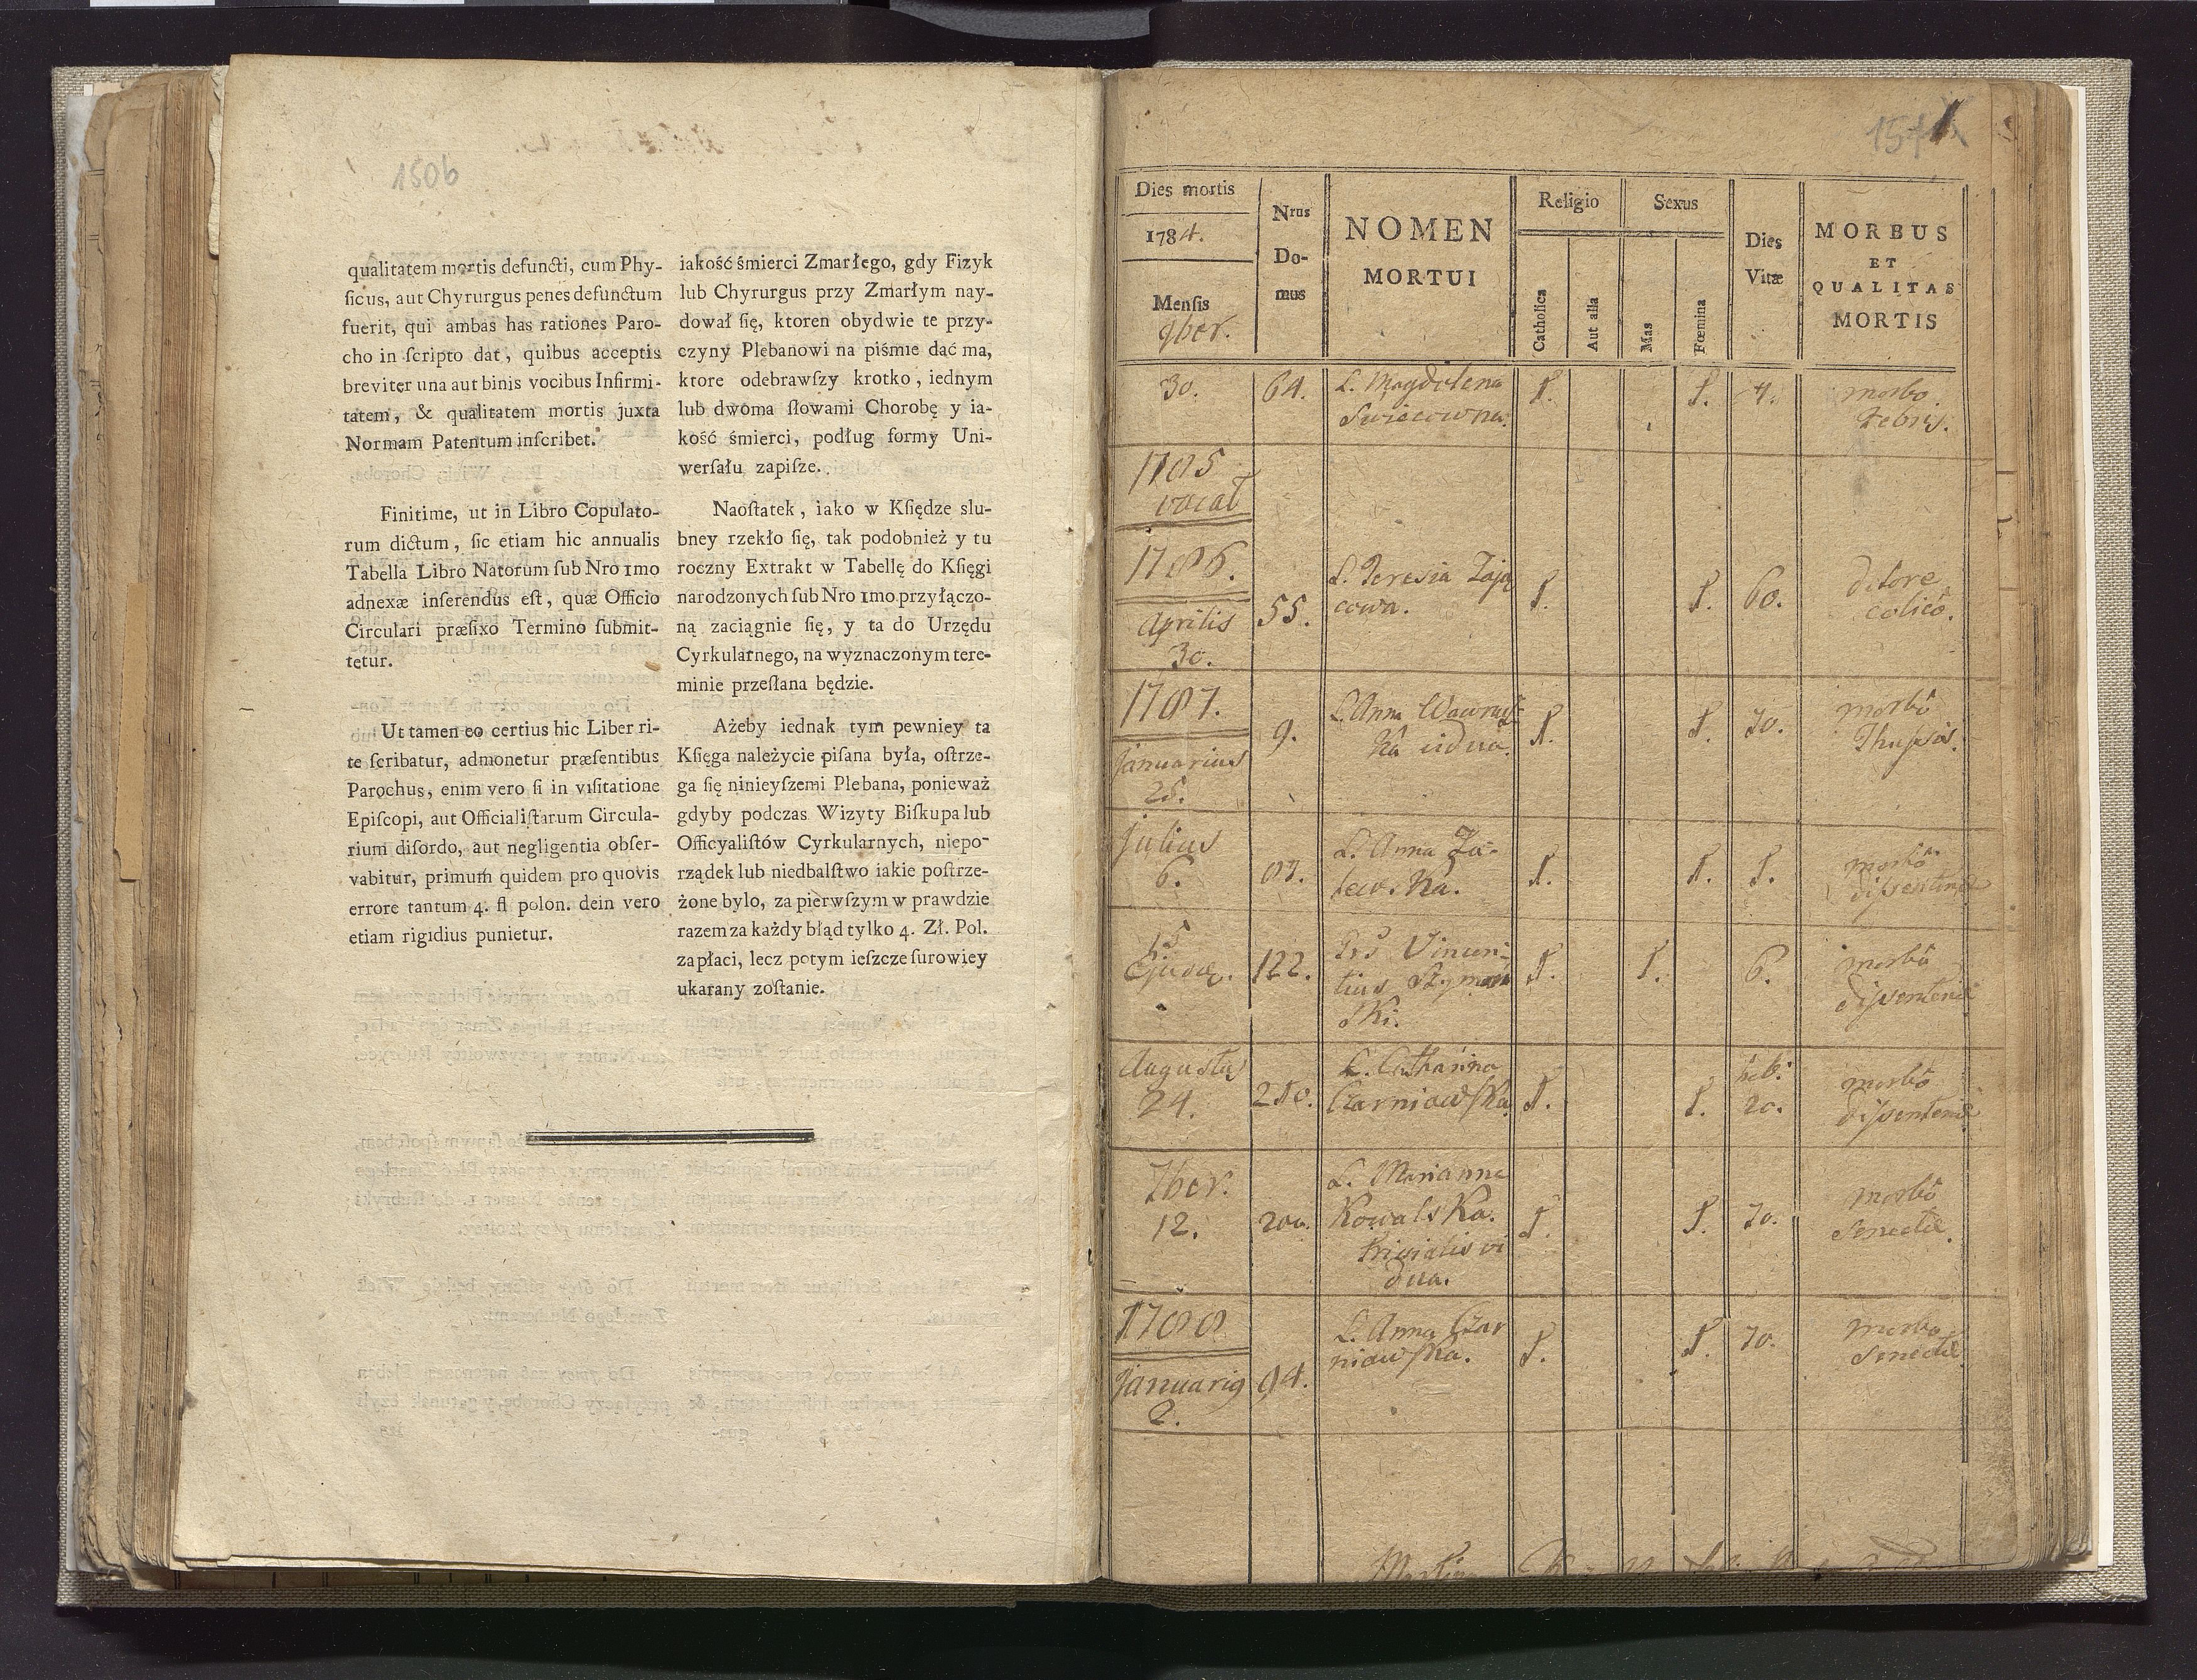 1506
qualitatem mortis defuncti, cum Phy-
ſicus, aut Chyrurgus penes defunctum
fuerit, qui ambas has rationes Paro-
cho in ſcripto dat, quibus acceptis
breviter una aut binis vocibus Infirmi-
tatem, & qualitatem mortis juxta
Normam Patentum inſcribet.
Finitime, ut in Libro Copulato-
rum dictum, ſic etiam hic annualis
Tabella Libro Natorum ſub Nro 1mo
adnexæ inſerendus eſt, quæ Officio
Circulari præfixo Termino ſubmit-
tetur.
Ut tamen eo certius hic Liber ri-
te ſcribatur, admonetur præſentibus
Parochus, enim vero ſi in viſitatione
Epiſcopi, aut Officialiſtarum Circula-
rium diſordo, aut negligentia obſer-
vabitur, primum quidem pro quovis
errore tantum 4. fl polon. dein vero
etiam rigidius punietur.
iakość śmierci Zmarłego, gdy Fizyk
lub Chyrurgus przy Zmarłym nay-
dował ſię, ktoren obydwie te przy-
czyny Plebanowi na piśmie dać ma,
ktore odebrawſzy krotko, iednym
lub dwoma ſłowami Chorobę y ia-
kość śmierci, podług formy Uni-
werſału zapiſze.
Naoſtatek, iako w Kſiędze slu-
bney rzekło ſię, tak podobnież y tu
roczny Extrakt w Tabellę do Kſięgi
narodzonych ſub Nro 1mo przyłączo-
ną zaciągnie ſię, y ta do Urzędu
Cyrkularnego, na wyznaczonym tere-
minie przeſłana będzie.
Ażeby iednak tym pewniey ta
Kſięga należycie piſana była, oſtrze-
ga ſię ninieyſzemi Plebana, ponieważ
gdyby podczas Wizyty Biſkupa lub
Officyaliſtów Cyrkularnych, niepo-
rządek lub niedbalſtwo iakie poſtrze-
żone bylo, za pierwſzym w prawdzie
razem za każdy błąd tylko 4. Zł. Pol.
zapłaci, lecz potym ieſzcze ſurowiey
ukarany zoſtanie.
Dies mortis
1784.
Menſis
9ber.
Nrus
Do-
mus
NOMEN
MORTUI
Religio
Catholica
Aut alia
Sexus
Mas
Fœmina
Dies
Vitæ
MORBUS
ET
QUALITAS
MORTIS
30. 64. L. Magdalena 1. 1. 4. morbo
Febris.
1785
vacat
1786.
Aprilis
30.
55. L. Teresia Zają
cowa. 1. 1. 60. dolore
colico.
1787.
Januarius
25.
9. L. Anna
ka vidua. 1. 1. 70. morbô
Julius
6. 87. L. Anna Za-
lew.ka. 1. 1. 1. morbô
15
122. Vincen-
tius Szyman
ski. 1. 1. 6. morbô
Augustus
24. 210. L. Catharina
Czarniawska 1. 1. heb:
20. morbô
7ber.
12. 200. L. Marianna
Kowalska.
vi
dua. 1. 1. 70. morbô
Senectæ.
1788
Januarig
2.
94. L. Anna Czar
niawska. 1. 1. 70. morbo
Senectæ